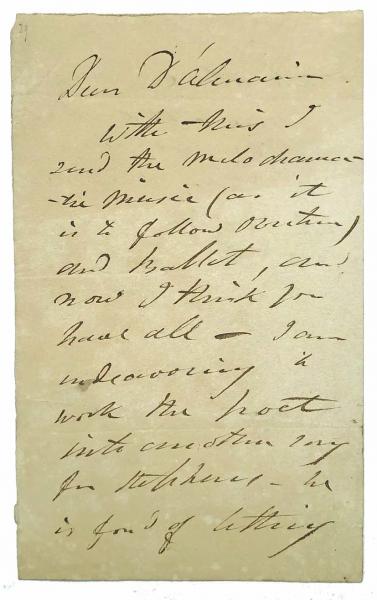 Dear D'almaine
with this I
send the melodrama-
-tic music (as it
is to follow
and Ballet, and
now I think you
have all - I am
endeavoring to
work the poet
into another song
for Stephens - he
is fond of letting